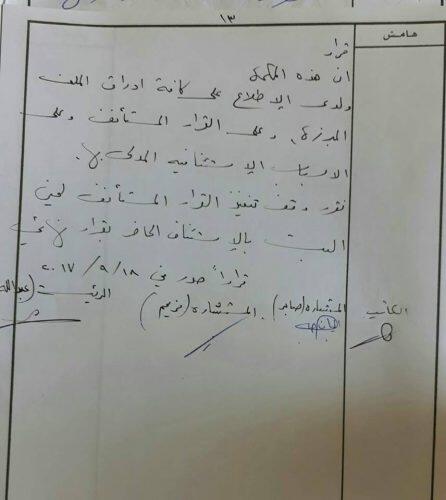 ١٣
هامش
قرار
ان هذه المحكمة
ولدى الاطلاع على كافة اوراق الملف
المبرزة، وعلى القرار المستأنف وعلى
الاسباب الاستئنافية المدلى بها.
نقرر وقف تنفيذ القرار المستأنف لحين
البت بالاستئناف الحاضر بقرار نهائي
قراراً صدر في ٢٠١٧/٩/١٨
الكاتب المستشارة (صابر) المستشارة (مريم) الرئيس (عبدالله